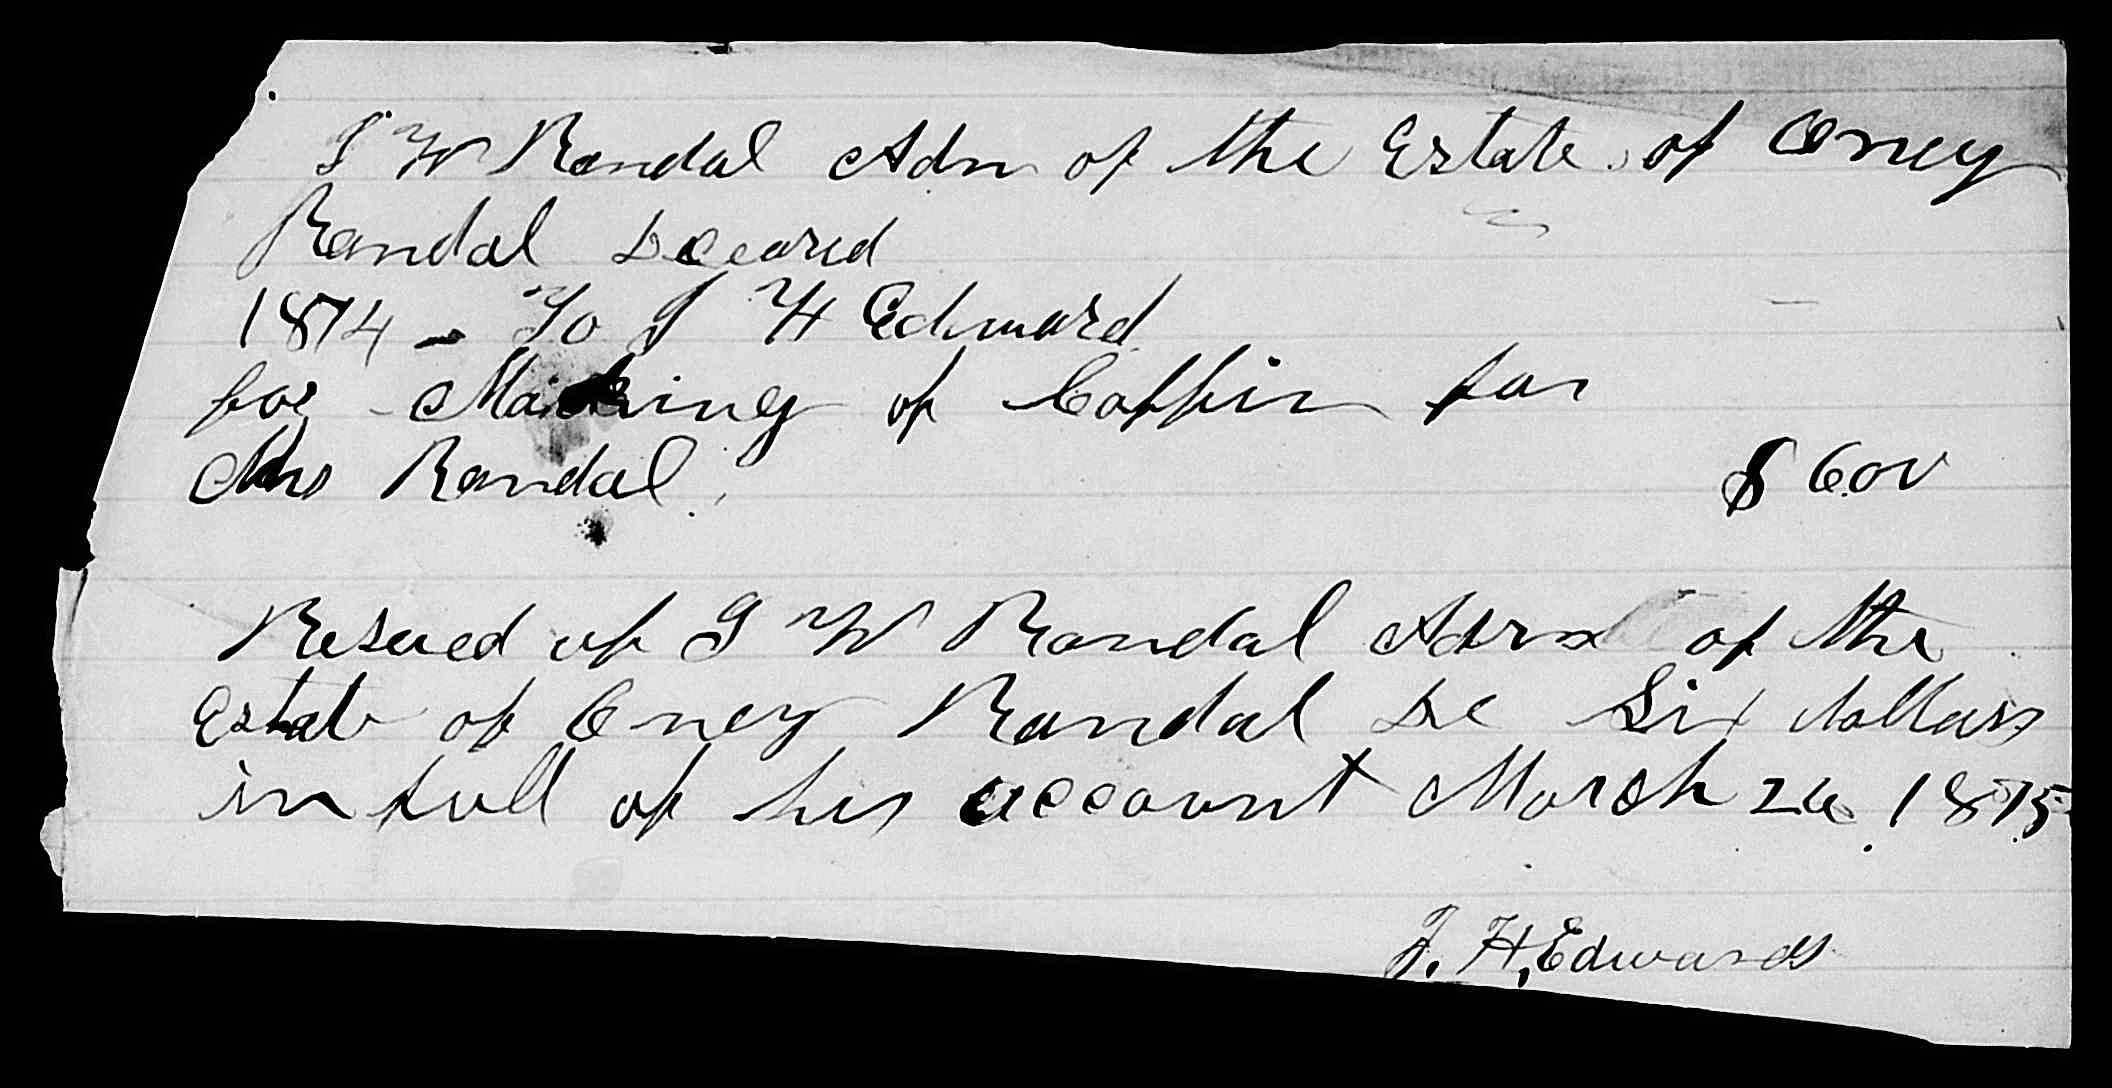 J W Randal Adm of the Estate of Oney
Randal Deceasd
1874 - To J H Edward
for Making of Coffin for
Mrs Randal. $ 6.00
Reseved of J W Randal Adm of the
Estate of Oney Randal De Six dollars
in full of his account March 26. 1875
J. H. Edwards